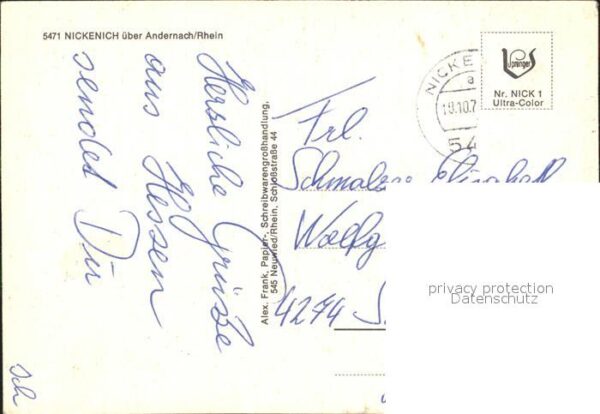 5471 NICKENICH über Andernach/Rhein
Herzliche Grüsse
aus Hessen
sendet Dir
Sch
Alex. Frank, Papier-, Schreibwarengroßhandlung,
545 Neuwied/Rhein, Schloßstraße 44
NICKE
a
19.10.7
54
Nr. NICK 1
Ultra-Color
Frl.
4274
privacy protection
Datenschutz